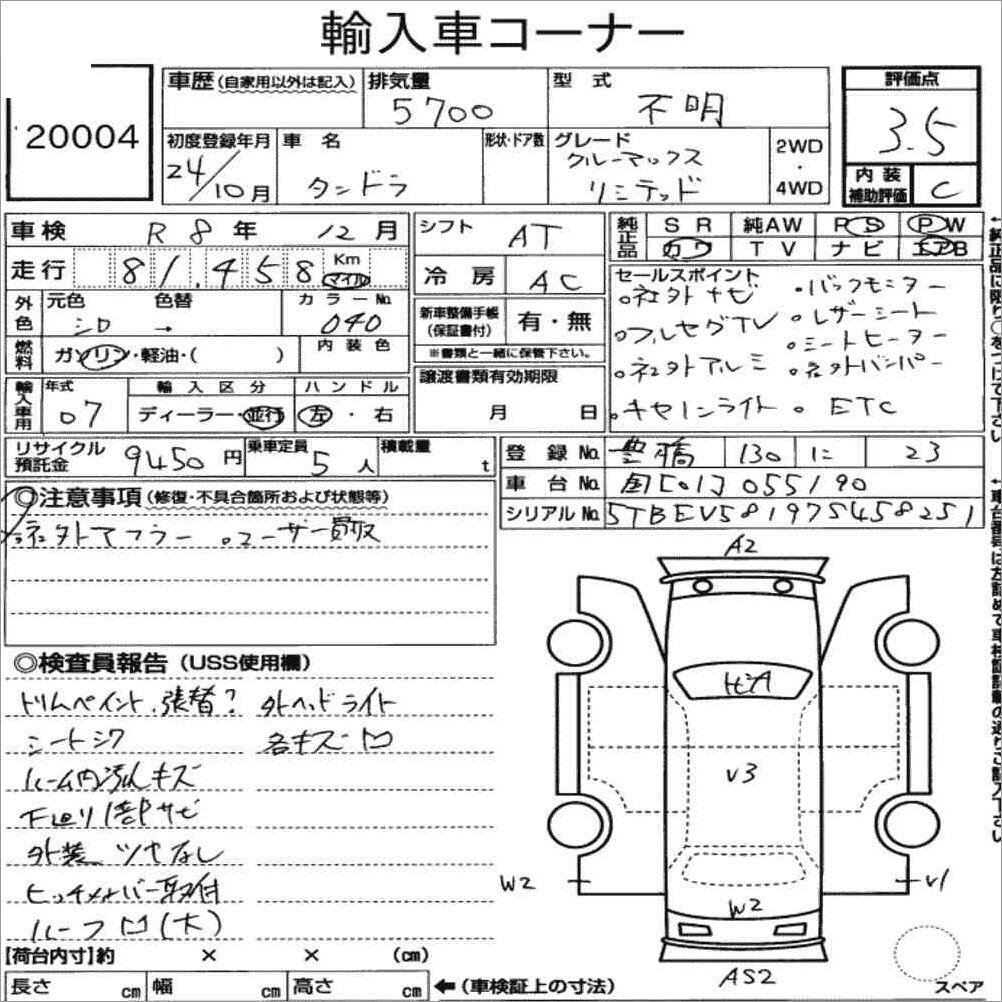 輸入車コーナー
20004
車歴(自家用以外は記入) 排気量 5700 型式 不明 評価点 3.5
初度登録年月 24/10月 車名 タンドラ 形状・ドア数 グレード クルーマックス リミテッド 2WD・4WD 内装補助評価 C
車検 R 8 年 12 月 シフト AT 純正品 SR 純AW PS PW
カワ TV ナビ エアB
走行 81,458 Km マイル 冷房 AC
セールスポイント
。社外ナビ 。バックモニター
外色 元色 シロ 色替 → カラーNo. 040 新車整備手帳(保証書付) 有・無
。フルセグTV 。レザーシート
。シートヒーター
燃料 ガソリン・軽油・( ) 内装色 ※書類と一緒に保管下さい。
。社外アルミ 。社外バンパー
輸入車用 年式 07 輸入区分 ディーラー・並行 ハンドル 左・右 譲渡書類有効期限 月 日
。キセノンライト 。ETC
リサイクル預託金 9450円 乗車定員 5人 積載量 t 登録No. 豊橋 130 に 23
車台No. 国[01]055190
シリアルNo. 5TBEV58197S458251
◎注意事項(修復・不具合箇所および状態等)
社外マフラー 。ユーザー買取
◎検査員報告(USS使用欄)
トリムペイント、張替? 外ヘッドライト
シートシワ 各キズ凹
ルーム内汚れキズ
下廻り1部サビ
外装ツヤなし
ヒッチメンバー取付
ルーフ凹(大)
A2
ヒビA
V3
W2 V1
W2
AS2
スペア
[荷台内寸]約 × × (cm)
長さ cm 幅 cm 高さ cm ←(車検証上の寸法)